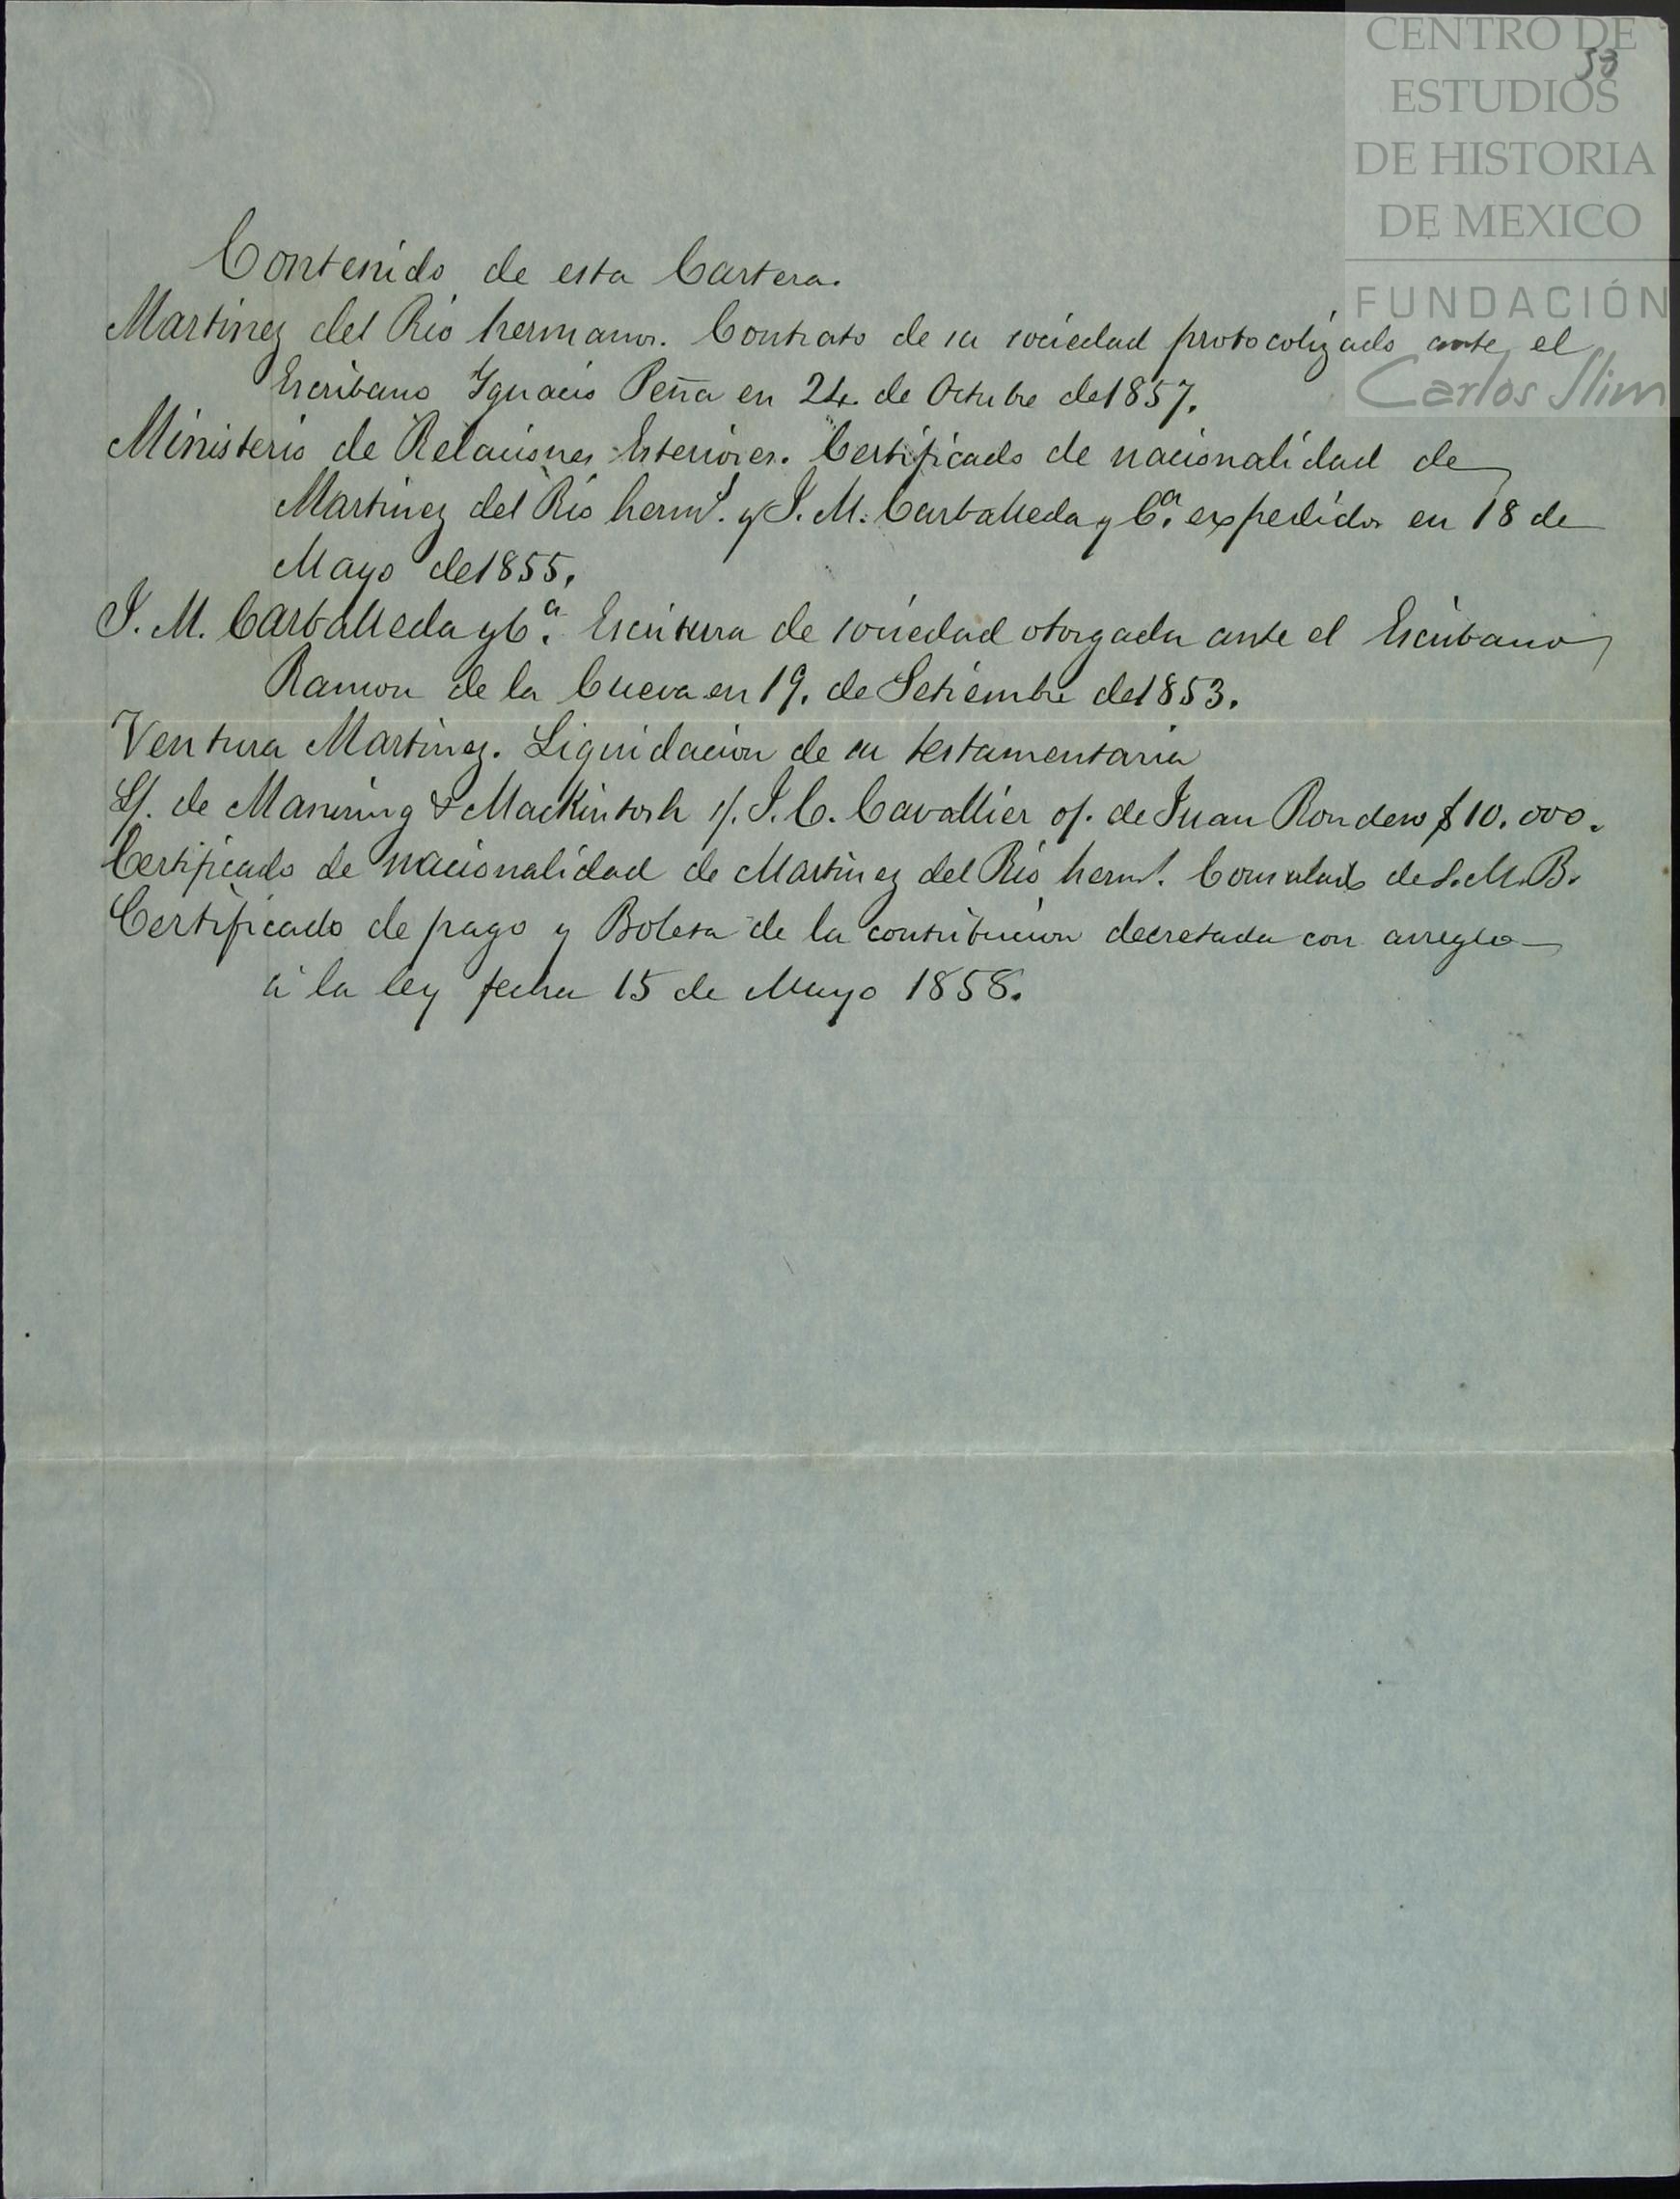 CENTRO DE
ESTUDIOS
DE HISTORIA
DE MEXICO
FUNDACIÓN
Carlos Slim
53
Contenido de esta Cartera.
Martinez del Rio hermanos. Contrato de su sociedad protocolizado ante el
Escribano Ygnacio Peña en 24 de Octubre de 1857.
Ministerio de Relaciones Esteriores. Certificado de nacionalidad de
Martinez del Rio herms. y J. M. Carballeda y Ca. expedidos en 18 de
Mayo de 1855.
J. M. Carballeda y Ca. Escritura de sociedad otorgada ante el Escribano
Ramon de la Cueva en 19. de Setiembre de 1853.
Ventura Martinez. Liquidacion de su testamentaria
L/. de Manning & Mackintosh s/. J. C. Cavallier o/. de Juan Rondero $10.000.
Certificado de nacionalidad de Martinez del Rio herms. Consulado de S. M. B.
Certificado de pago y Boleta de la contribucion decretada con arreglo
á la ley fecha 15 de Mayo 1858.